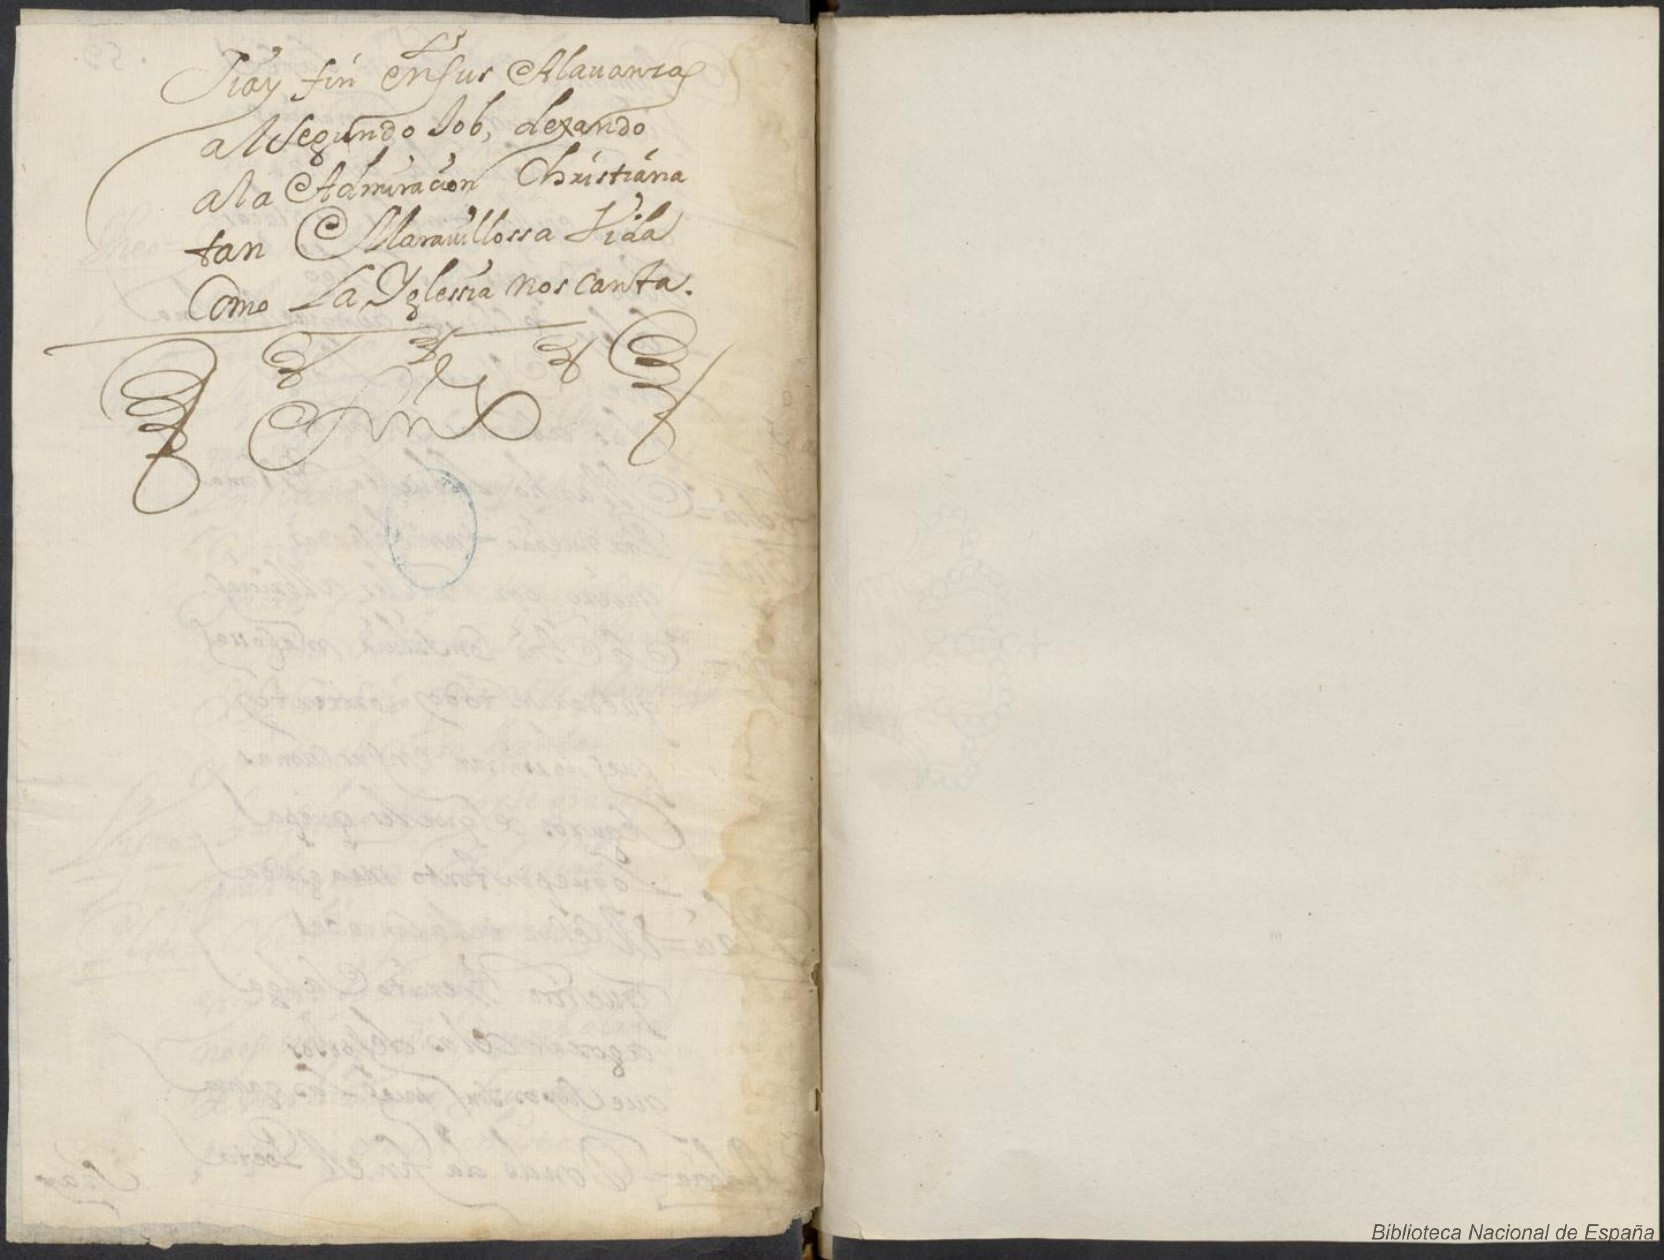 fin en sus Alauanzas
al segundo Job, dexando
a la Admiracion Christiana
tan Marauillossa Vida
Como La Yglessia nos canta.
Fin
Biblioteca Nacional de España